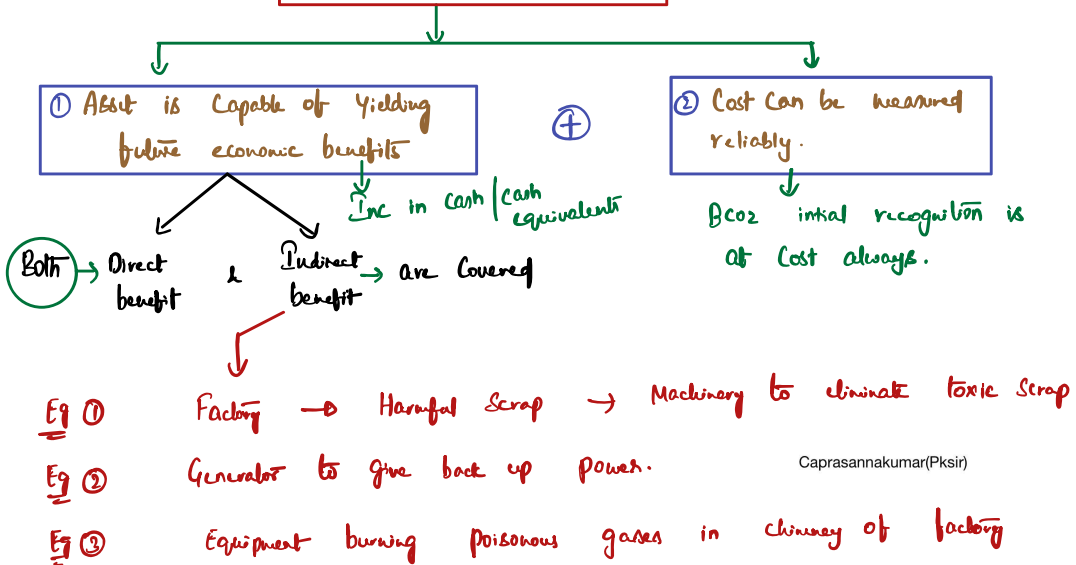 ① Asset is Capable of Yielding
future economic benefits
+
② Cost Can be measured
reliably.
Inc in cash/cash
equivalents
Bcoz intial recognition is
at Cost always.
Both → Direct & Indirect → are Covered
benefit benefit
Eg ① Factory → Harmful Scrap → Machinery to eliminate toxic Scrap
Eg ② Generator to give back up power.
Caprasannakumar(Pksir)
Eg ③ Equipment burning poisonous gases in chimney of factory